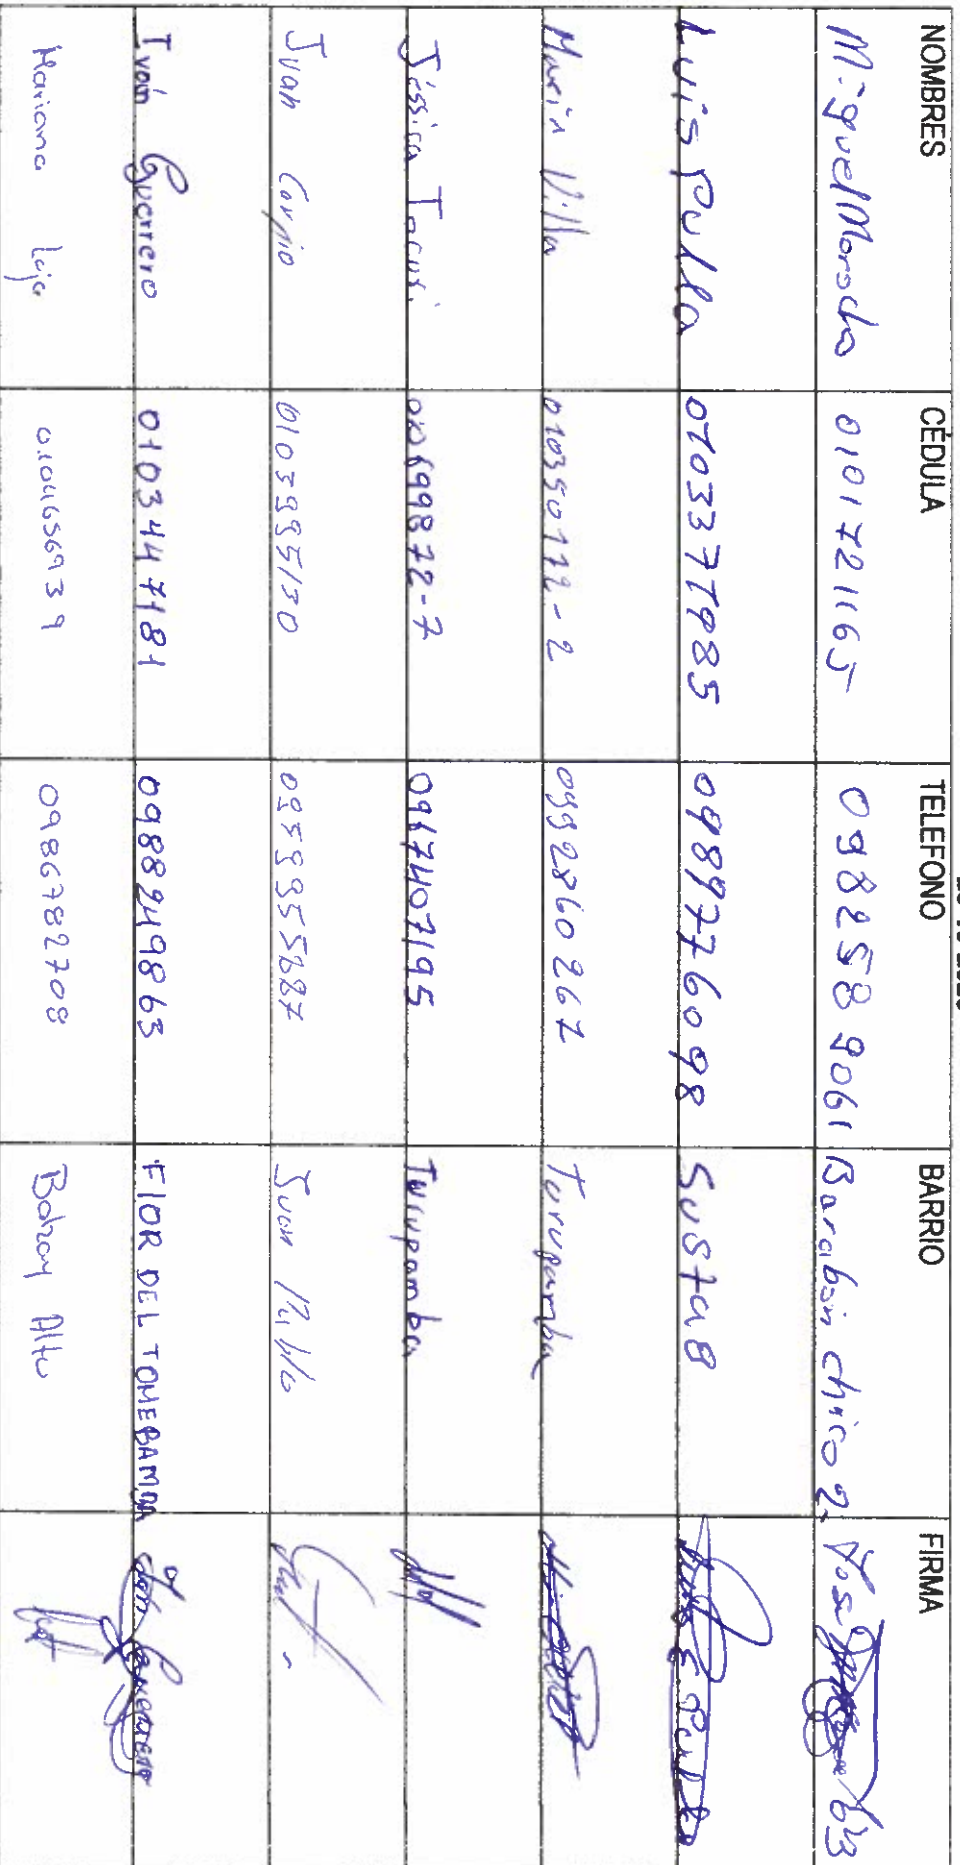 NOMBRES CÉDULA TELEFONO BARRIO FIRMA
Miguel Morocho 0101721165 0982589061 Barabon chico 2
Luis Pulla 0103371985 0989776098 Sustag
María Villa 010350172-2 0992860267 Turupamba
Jéssica Tacuri 010699872-7 0967407195 Turupamba
Juan Carpio 0103995130 0959955887 Juan Pablo
Iván Guerrero 0103447181 0988249863 FlOR DEL TOMEBAMBA
Mariana Loja 0104656939 0986782708 Bahzay Alto